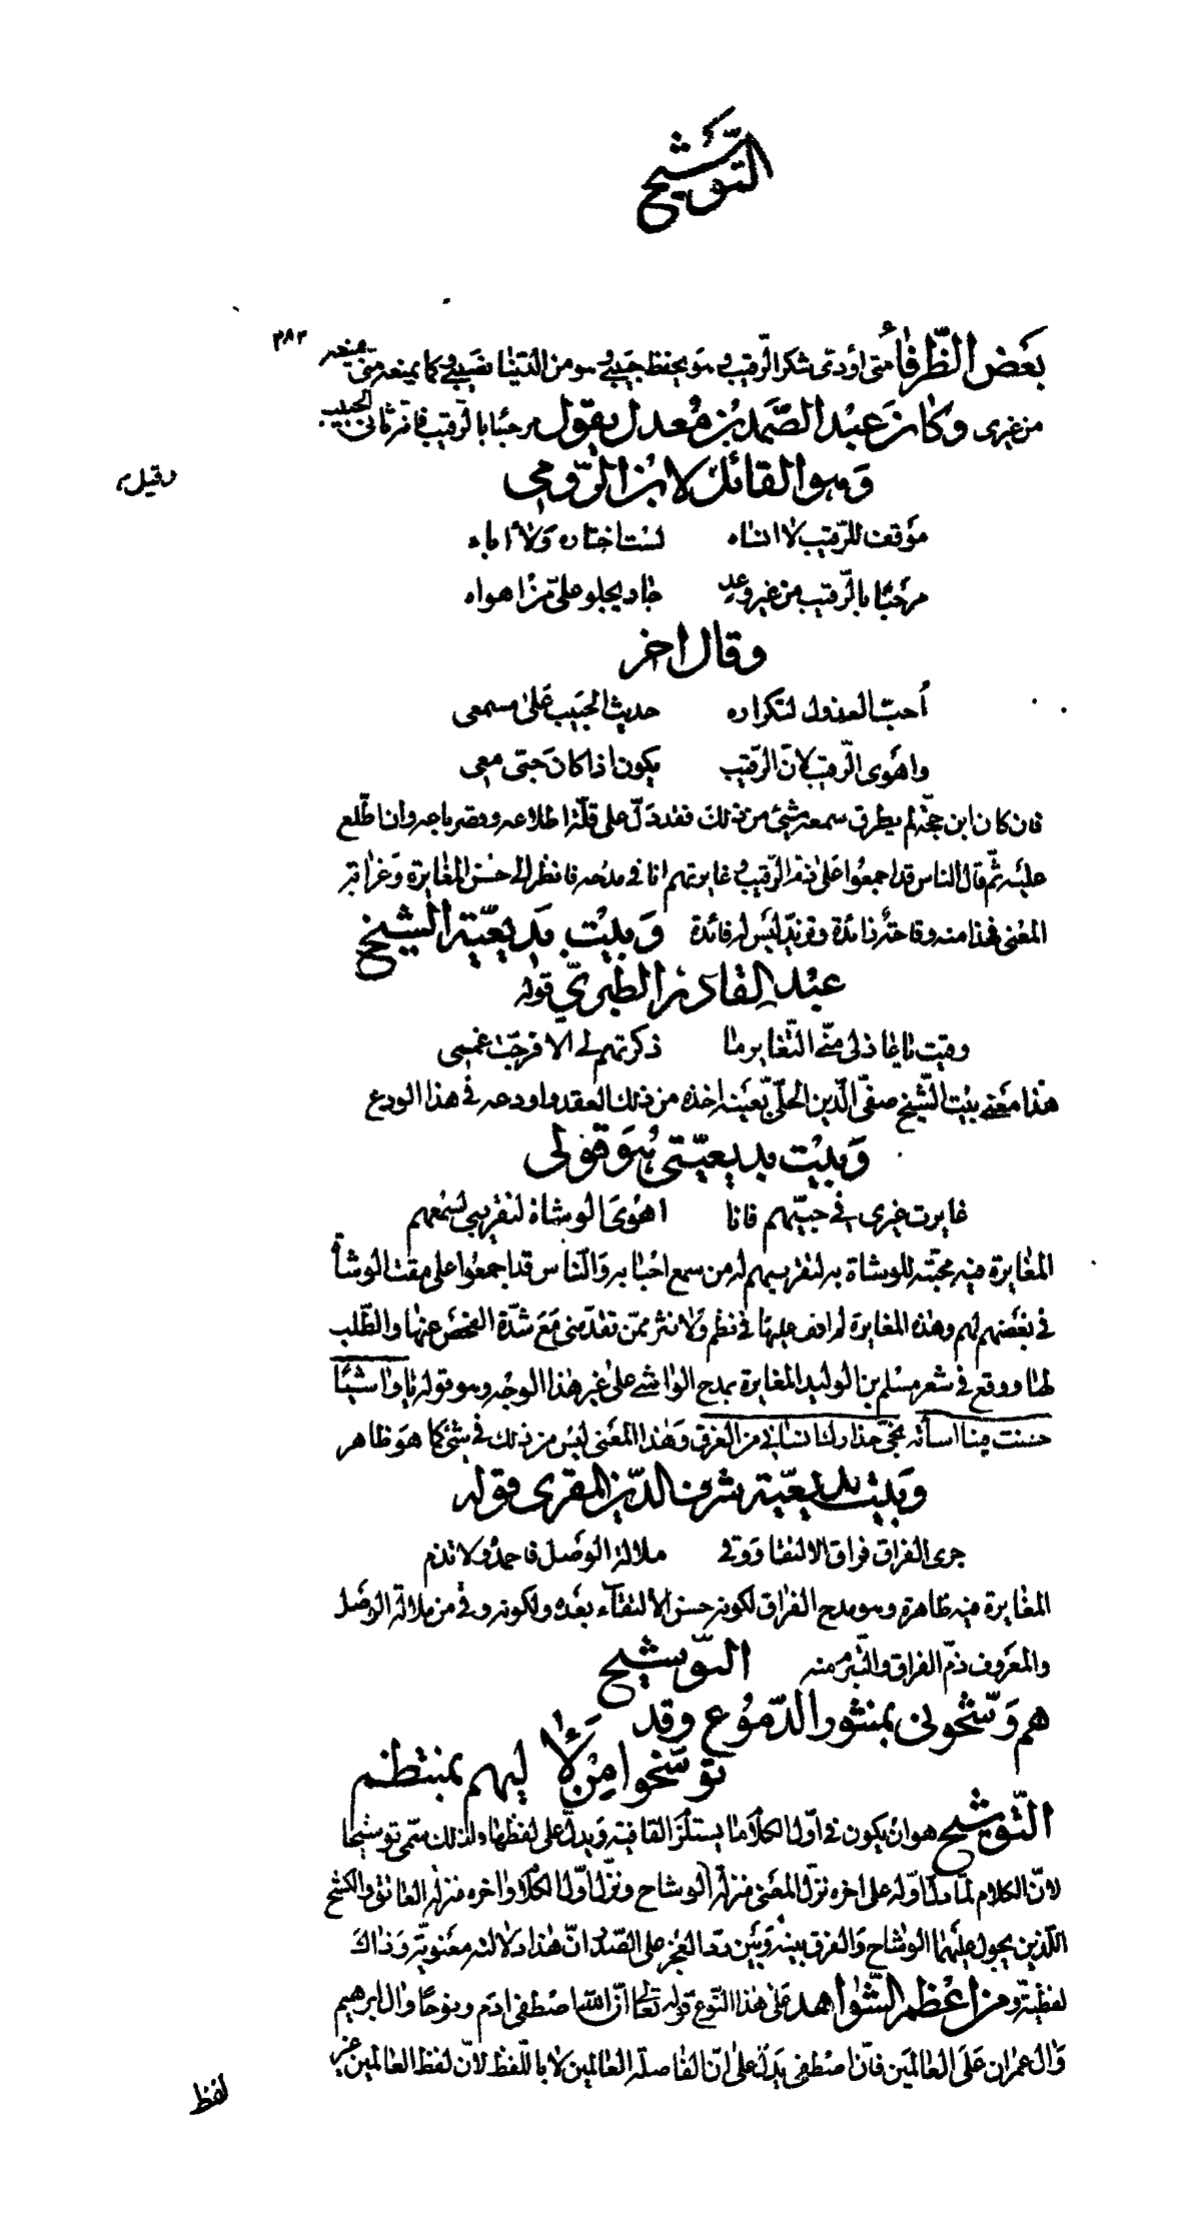 التَّوشيح
٣٨٣
بَعض الظّرفاءُ متى أؤدّى شكر الرّقيب وهو يحفظ حبيبى وهو من الدّنيا نصيبى وكما يمنعه منّى يمنعه
من غيرى وكان عَبْد الصَّمَد بْن مُعدل يقول مرحبًا بالرّقيب فانّه ثانى الحبيب
وَهو القائل لا بن الرّومى
وقيل
مَوقف للرّقيب لا انساه لسْت اختاره وَلا أاباه
مرحَبًا بالرّقيب من غير وعدٍ جاد يجلو علىّ من اهواه
وقال اخر
أُحبّ العذول لتكراره حديث الحبَيب عَلى مسمعى
واهَوى الرّقيب لانّ الرّقيب يكون اذا كانَ حِبّى معى
فان كان ابن حجّة لم يطرق سمعه شئ من ذلك فقد دَلّ على قلّة اطلاعه وقصر باعه وان اطّلع
عليه ثمّ قال النّاس قد اجمعُوا عَلى ذمّ الرّقيب وغايرتهم انا فى مدْحه فانظر الى حسْن المغايرة وَغرابة
المعْنى فهذا منه وقاحة زائدة وتزيّد ليْس له فائدة وَبيْت بَديعيّة الشيخ
عَبْد القادر الطبرىّ قوله
وقيت يا عاذلى منّى التّغاير ما ذكرتهم لى الا فرجّت غممى
هذا معَنى بيْت الشّيخ صفىّ الدّين الحلّى بعَيْنه اخذه من ذلك العقد واودعه فى هذا الودع
وَبيْت بديعيّتى هُوَ قولى
غايرت غيرى فى حبيّهم فانا اهْوَى الوشاة لتقريبى لسَمْعهم
المغايرة فيه محبّته للوشاة به لتقريبهم له من سمع احْبابه وَالنّاس قد اجمعوا على مقت الوشاة
فى بغضهم لهم وهذه المغايرة لم اقف عليها فى نظم وَلا نثر ممّن تقدّمنى مَعَ شدّة الفحْص عنها والطّلب
لها ووقع فى شعر مسْلم بن الوليد المغايرة بمدح الواشى على غير هذا الوجْه وهو قوله يا واشيًا
حسنت فينا اساءته نجّى حذارك انسانى من الغرق وَهذا المعَنى ليْس من ذلك فى شئ كما هوَ ظاهر
وَبيْت بديعيّة شرف الدّين المقرى قوله
جرى الفراق فراق الالتقا ووقى ملالة الوصَل فاحمدْه ولا تذم
المغايرة فيه ظاهرة وهو مدح الفراق لكونه حسن الالتقاء بعَده ولكونه وقى من ملالة الوصَل
والمعَروف ذمّ الفراق والتّبرّم منه التّوشيح
هم وَشّحونى بمنثور الدّموع وقد
توشّحوا مِنْ لَأَاليهم بمنتظم
التّوشيح هو ان يكون فى اوّل الكلام ما يستلزم القافية وَيدلّ على لفظها ولذلك سمّى توشيحا
لانّ الكلام لما دلّ اوّله على اخره نزّل المعَنى منزلة الوشاح ونزّل اوّل الكلام واخره منزلة العاتق والكشح
اللّذين يجول عليَهما الوشاح وَالفرق بينه وَبَين ردّ العجُز على الصّدر انّ هذا دَلالته معَنويّة وَذاك
لفظيّة ومن اعْظم الشّواهد عَلى هذا النّوع قوله تعَالى انّ اللّه اصْطفى ادَم ونوحًا وال ابرهيم
وَال عمران عَلَى العالمَين فانّ اصْطفى يَدلّ على انّ الفاصلة العالمين لا باللّفظ لانّ لفظ العالمين غير
لفظ